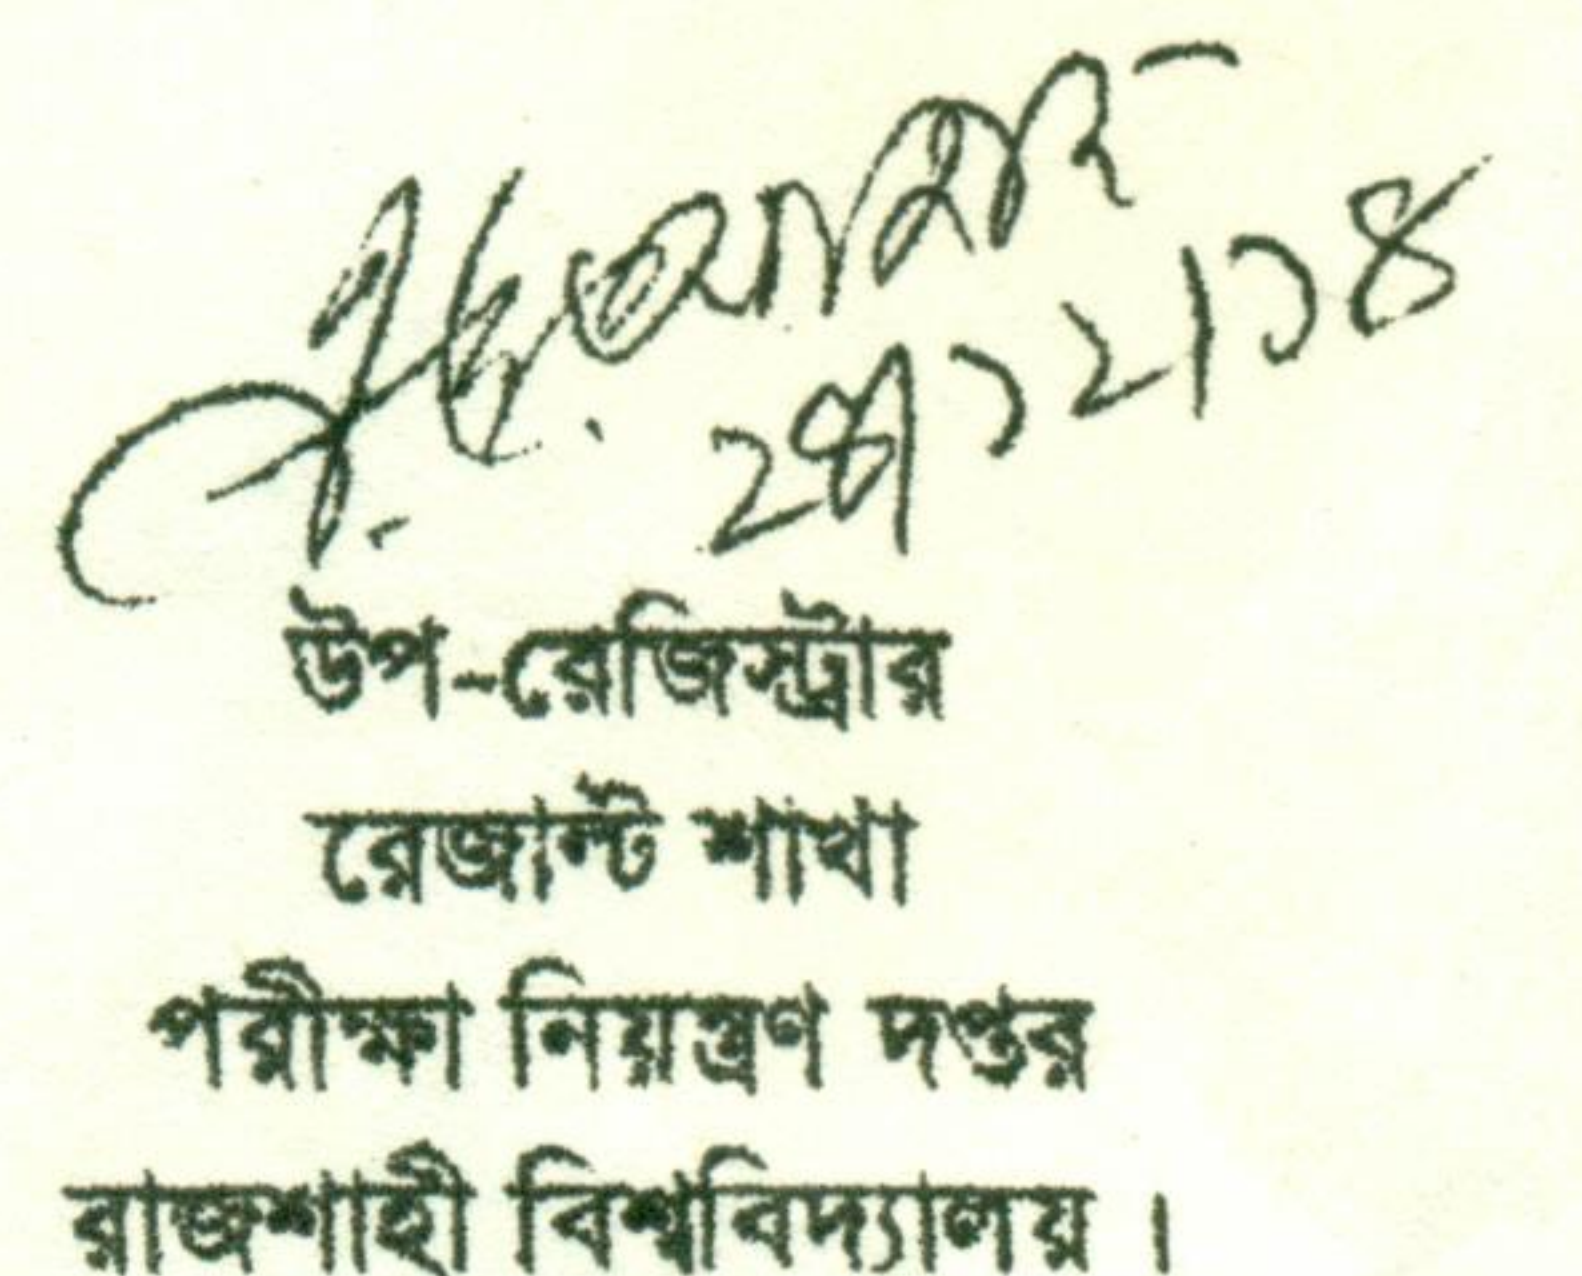 ২৪|১২|১৪
উপ-রেজিস্ট্রার
রেজাল্ট শাখা
পরীক্ষা নিয়ন্ত্রণ দপ্তর
রাজশাহী বিশ্ববিদ্যালয় ।